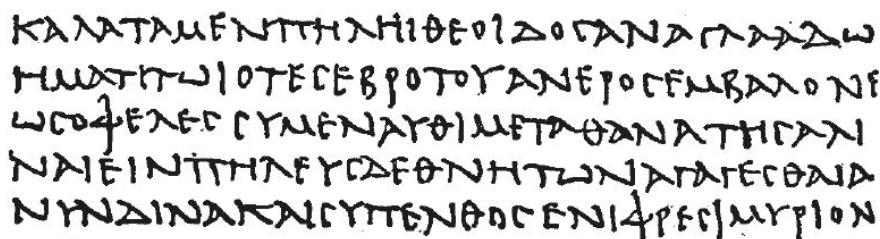 ΚΑΛΑΤΑΜΕΝΠΗΛΗΙΘΕΟΙΔΟϹΑΝΑΓΛΑΑΔω
ΗΜΑΤΙΤωΙΟΤΕϹΕΒΡΟΤΟΥΑΝΕΡΟϹΕΜΒΑΛΟΝΕ
ωϹΟΦΕΛΕϹϹΥΜΕΝΑΥΘΙΜΕΤΑΘΑΝΑΤΗϹΑΛΙ
ΝΑΙΕΙΝΠΗΛΕΥϹΔΕΘΝΗΤωΝΑΓΑΓΕϹΘΑΙΑ
ΝΥΝΔΙΝΑΚΑΙϹΥΠΕΝΘΟϹΕΝΙΦΡΕϹΙΜΥΡΙΟΝ